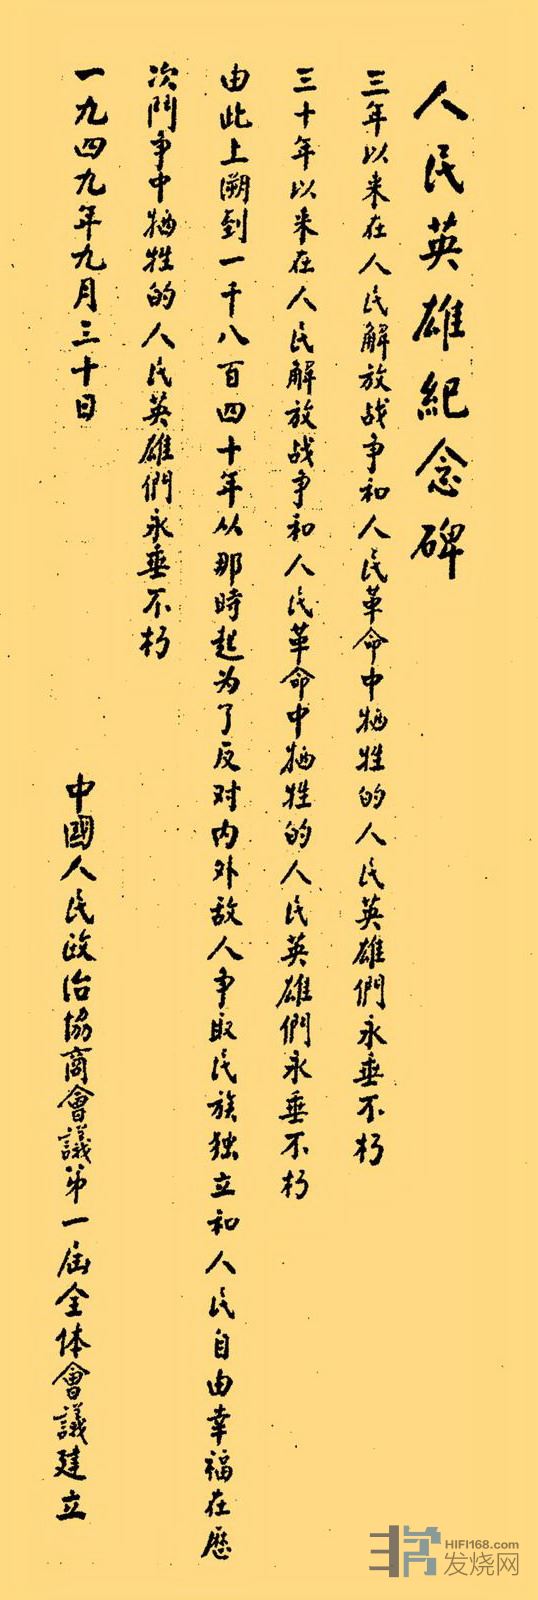 人民英雄紀念碑
三年以来在人民解放战争和人民革命中牺牲的人民英雄們永垂不朽
三十年以来在人民解放战争和人民革命中牺牲的人民英雄們永垂不朽
由此上溯到一千八百四十年从那時起为了反对内外敌人争取民族独立和人民自由幸福在歷
次鬥争中牺牲的人民英雄們永垂不朽
一九四九年九月三十日
中國人民政治協商會議第一届全体會議建立
HIFI168.com
发烧网